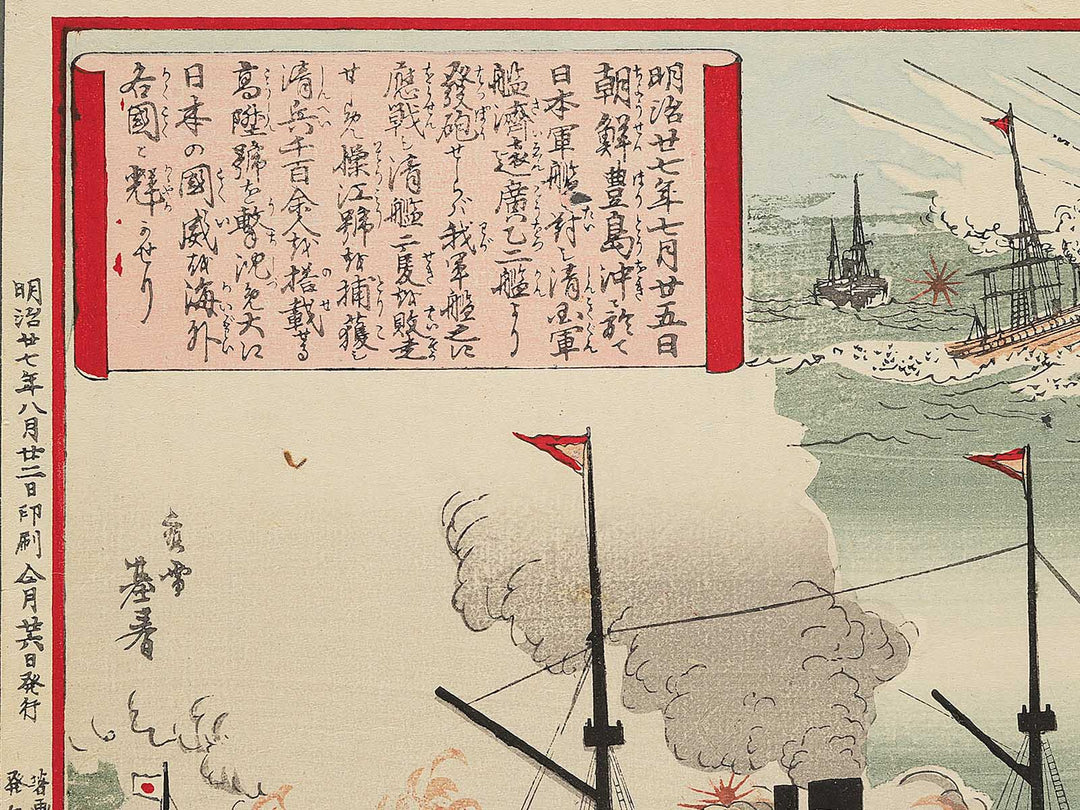 明治廿七年七月廿五日
朝鮮豊島沖に於て
日本軍艦に對し清国軍
艦濟遠廣乙二艦より
發砲せしが我軍艦之に
應戰し清艦二隻を敗走
せしめ操江號を捕獲し
清兵千百余人を搭載せる
高陞號を撃沈し大に
日本の國威を海外
各國に輝かせり
春雪
基春
明治廿七年八月廿二日印刷仝月廿六日発行